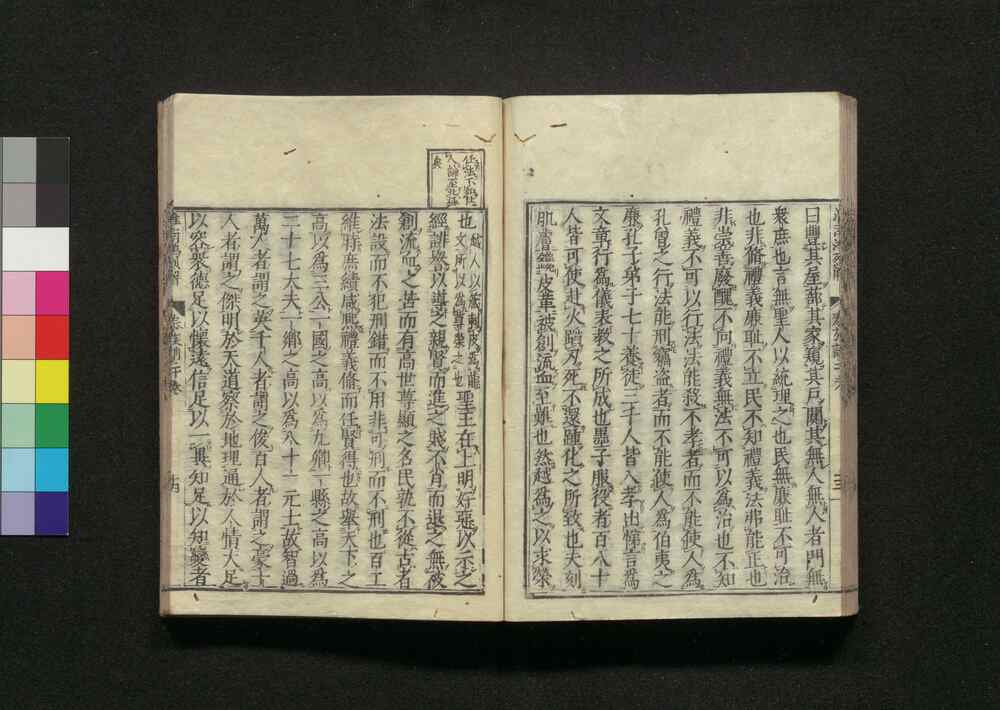 曰豐其屋蔀其家窺其戶闃其無人無人者門無
衆庶也言無聖人以統理之也民無廉耻不可治
也非脩禮義廉耻不立民不知禮義法弗能正也
非崇善廢醜不向禮義無法不可以為治也不知
禮義不可以行法法能殺不孝者而不能使人為
孔曾之行法能刑竊盗者而不能使人為伯夷之
廉孔子弟子七十養徒三千人皆入孝出悌言為
文章行為儀表教之所成也墨子服役者百八十
人皆可使赴火蹈刃死不還踵化之所致也夫刻
肌膚鑱皮革被創流血至難也然越為之以求榮
也越人以箴刺皮為龍文所以為尊榮之也聖王在上明好惡以示之
經誹譽以導之親賢而進之賤不肖而退之無被
創流血之苦而有高世尊顯之名民孰不從古者
法設而不犯刑錯而不用非可刑而不刑也百工
維時庶績咸熙禮義脩而任賢得也故舉天下之
高以為三公一國之高以為九卿一縣之高以為
二十七大夫一鄉之高以為八十一元士故智過
萬人者謂之英千人者謂之俊百人者謂之豪十
人者謂之傑明於天道察於地理通於人情大足
以容衆德足以懷遠信足以一異知足以知變者